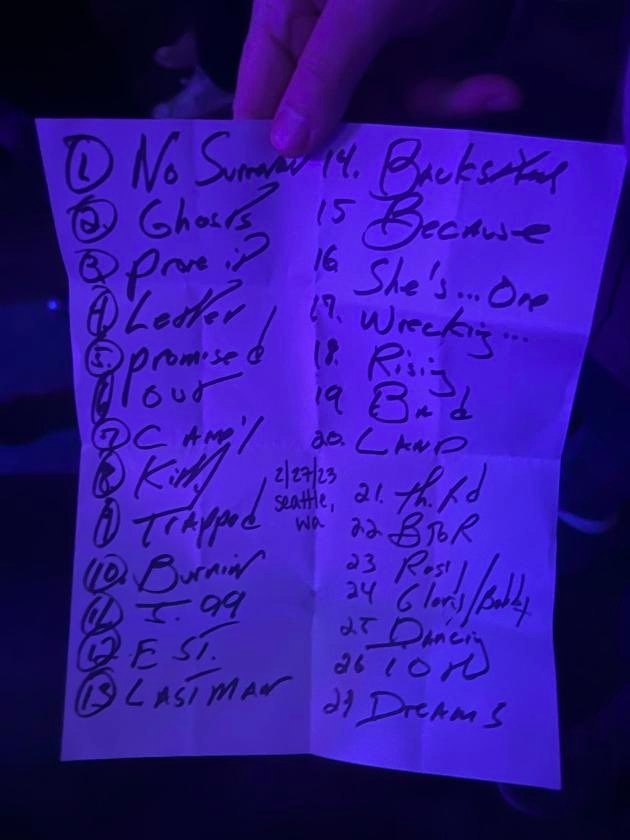 1 No Surrender
2. Ghosts
3 Prove it
4 Letter
5. Promised
6 Out
7 Candy
8 Kitty
9 Trapped
10. Burnin
11 J. 99
12 E ST.
13 LAST MAN
14. Backstreets
15 Because
16 She's... One
17. Wrecking...
18. Rising
19 Bad
20. LAND
2/27/23
seattle,
wa
21. th. Rd
22 BTOR
23 Rosy
24 Glory/Bobby
25 Dancing
26 10th
27 Dreams